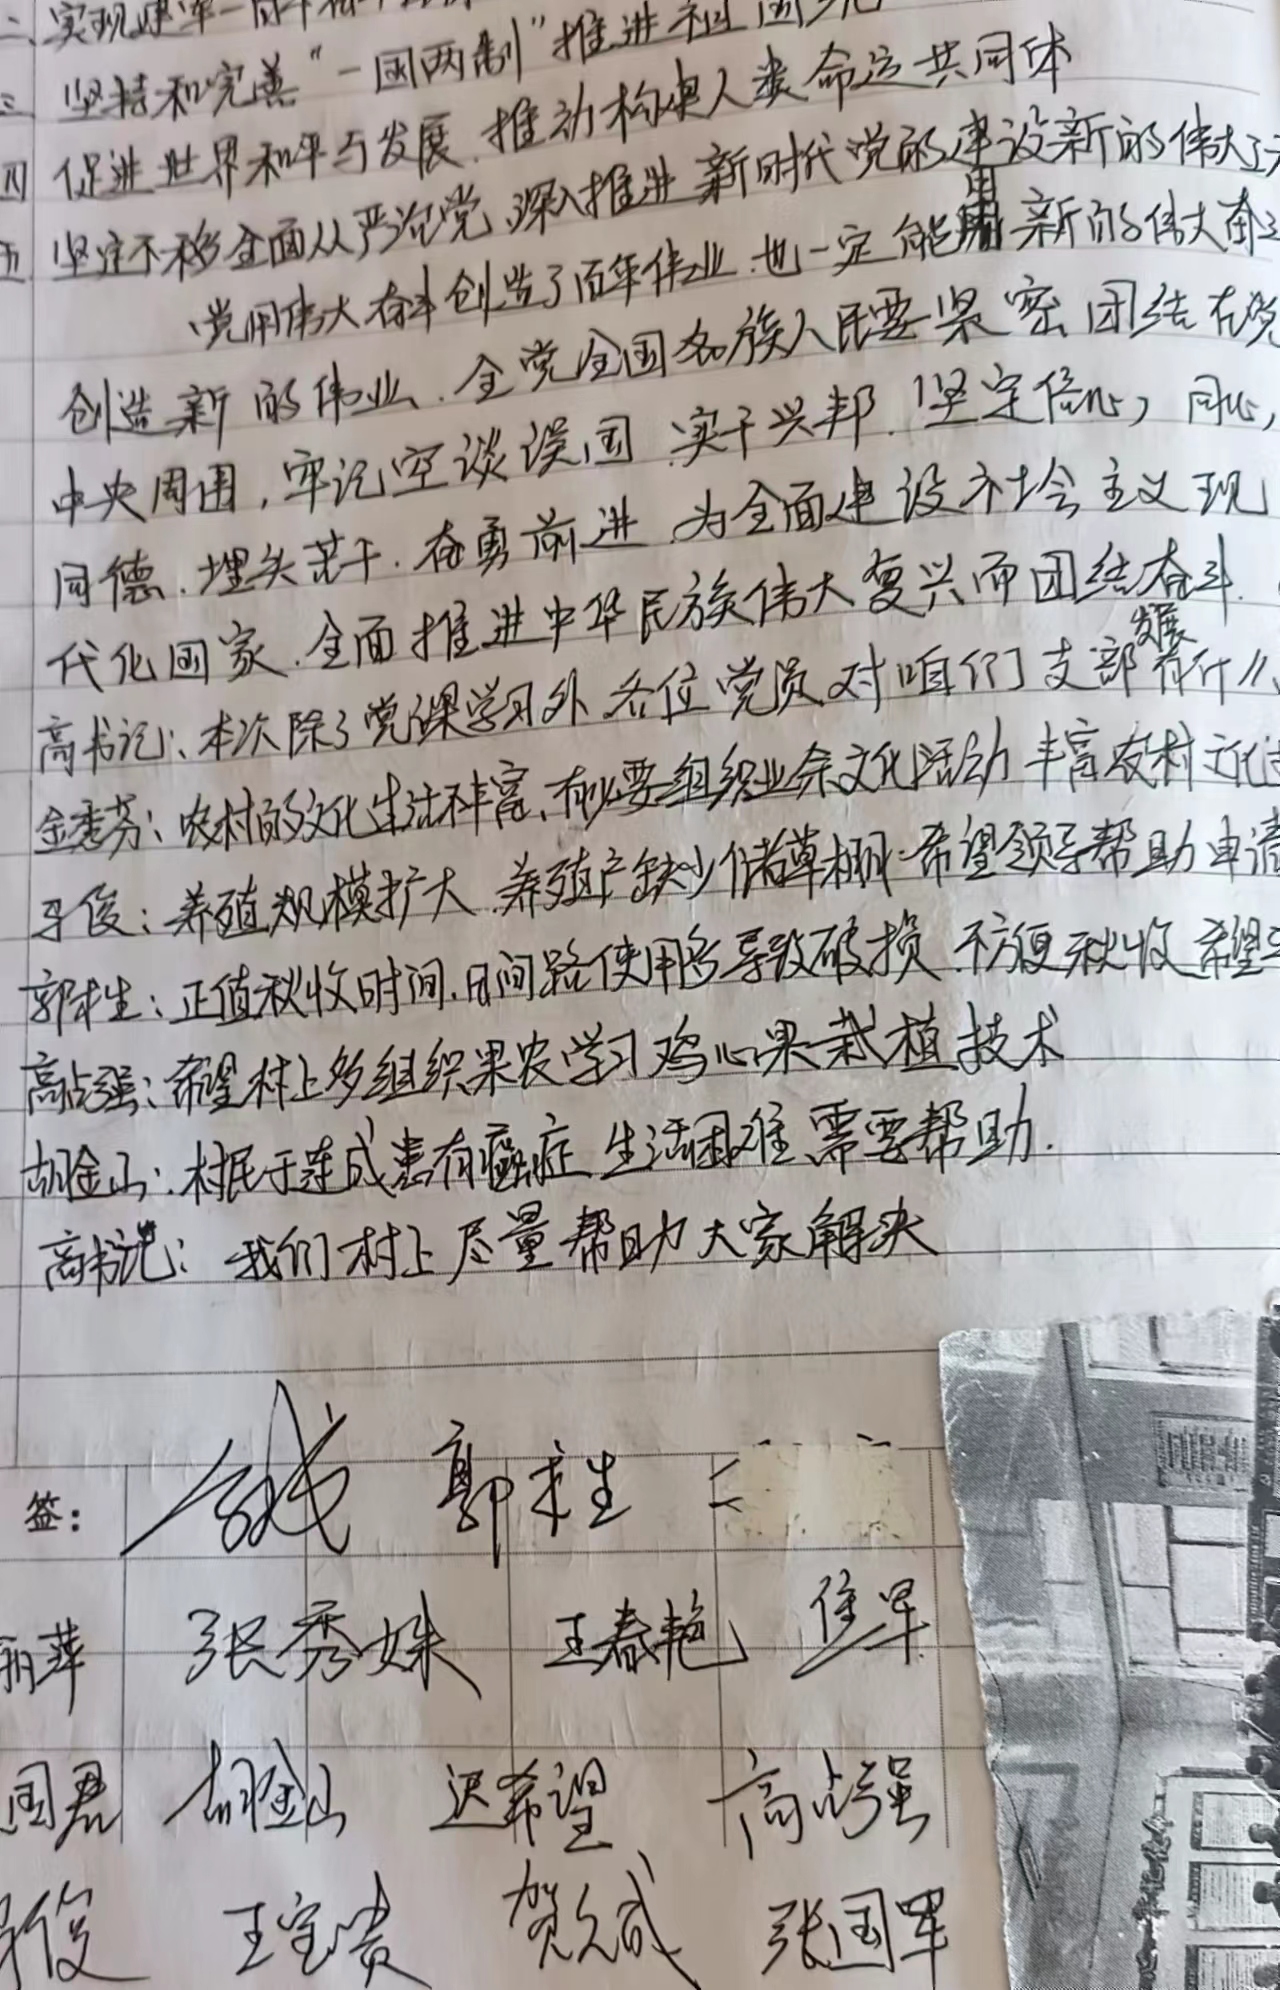 二、实现建军一百年
三 坚持和完善“一国两制”推进祖国统
四 促进世界和平与发展、推动构建人类命运共同体
五 坚定不移全面从严治党、深入推进新时代党的建设新的伟大工
党用伟大奋斗创造了百年伟业、也一定能用新的伟大奋斗
创造新的伟业、全党全国各族人民要紧密团结在党
中央周围，牢记空谈误国、实干兴邦、坚定信心，同心，
同德、埋头苦干、奋勇前进、为全面建设社会主义现
代化国家、全面推进中华民族伟大复兴而团结奋斗.
高书记：本次除了党课学习外 各位党员 对咱们支部发展有什
金秀芬：农村的文化生活不丰富、有必要组织业余文化活动 丰富农村文化
俊：养殖规模扩大、养殖户缺少储草棚.希望领导帮助申请
郭求生：正值秋收时间、田间路使用多导致破损、不方便秋收 希望
高占强：希望村上多组织果农学习鸡心果栽植技术
胡金山：村民于连成患有癌症 生活困难、需要帮助.
高书记：我们村上尽量帮助大家解决
签： 郭求生
丽萍 张秀姝 王春艳
国君 胡金山 迟希望 高占强
俊 王宝贵 贺久成 张国军